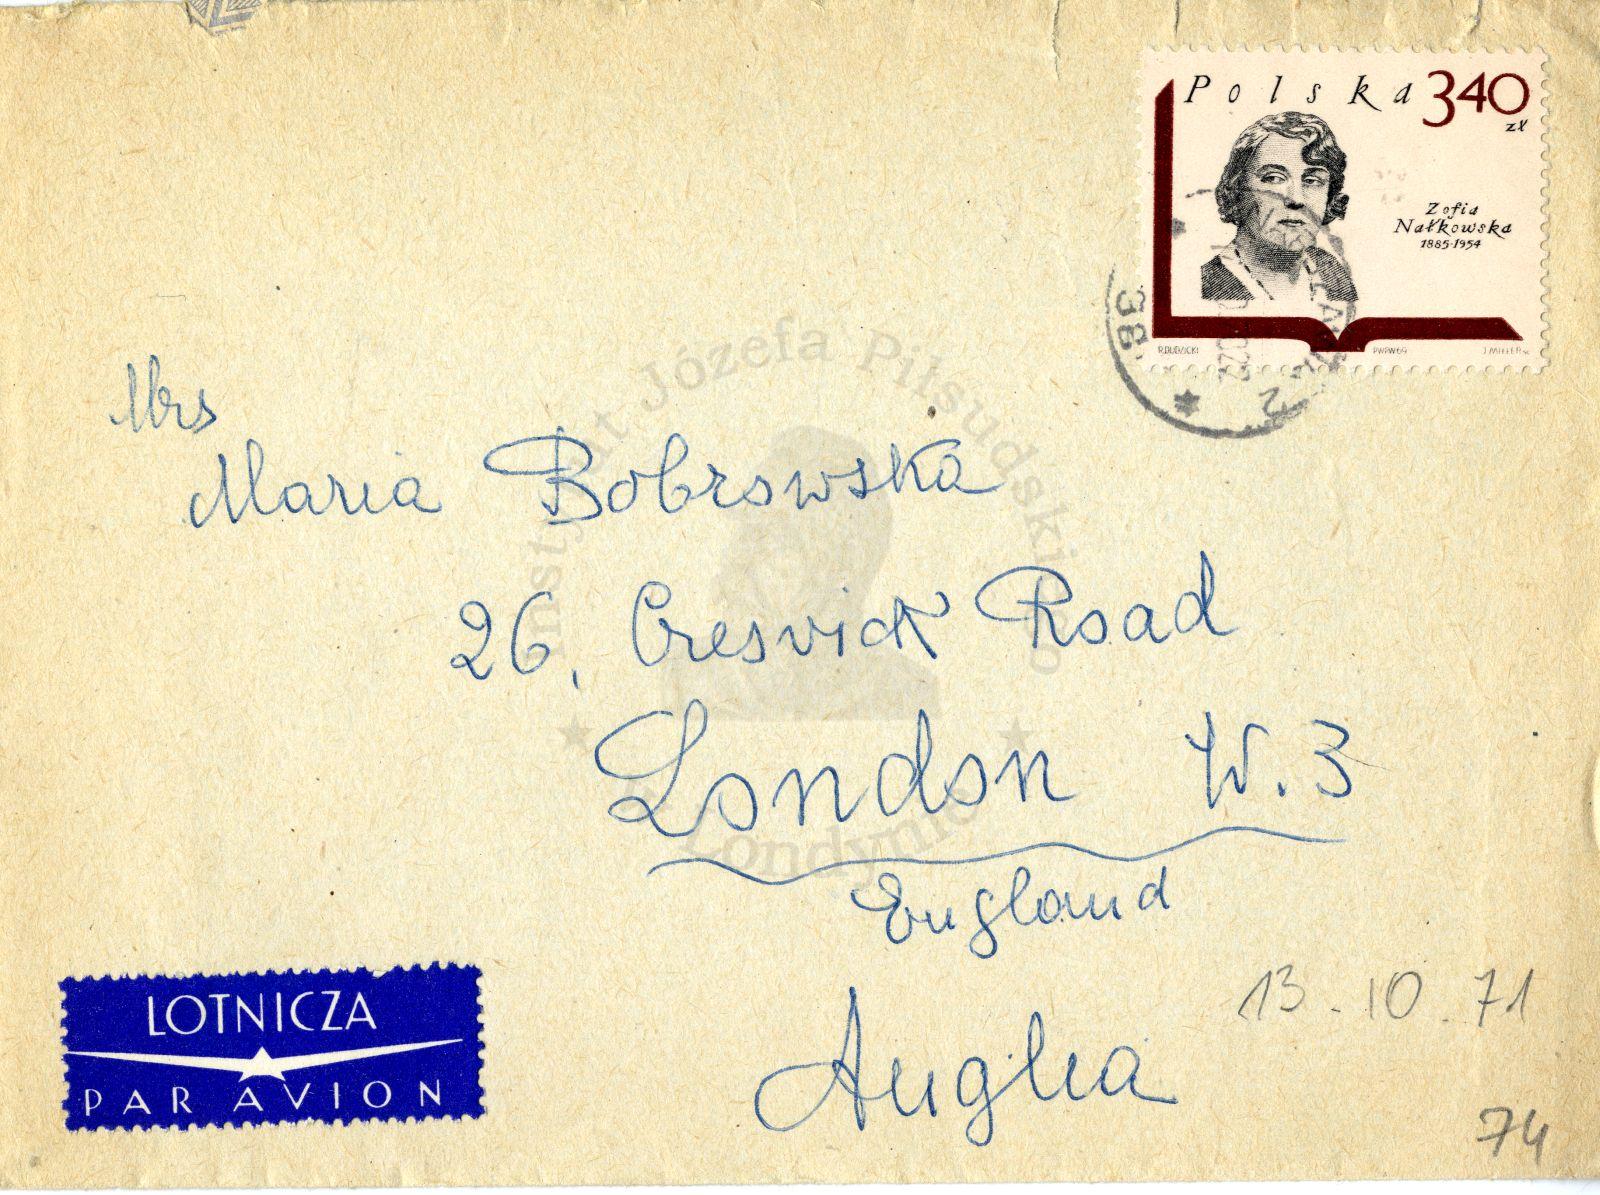 Polska 340
zł
Zofia
Nałkowska
1885-1954
R.DUDZICKI PWPW 69 J.MILLER sc.
38
2
Instytut Józefa Piłsudskiego
Londynie
Mrs
Maria Bobrowska
26, Cresvick Road
London W.3
England
Anglia
13.10.71
74
LOTNICZA
PAR AVION